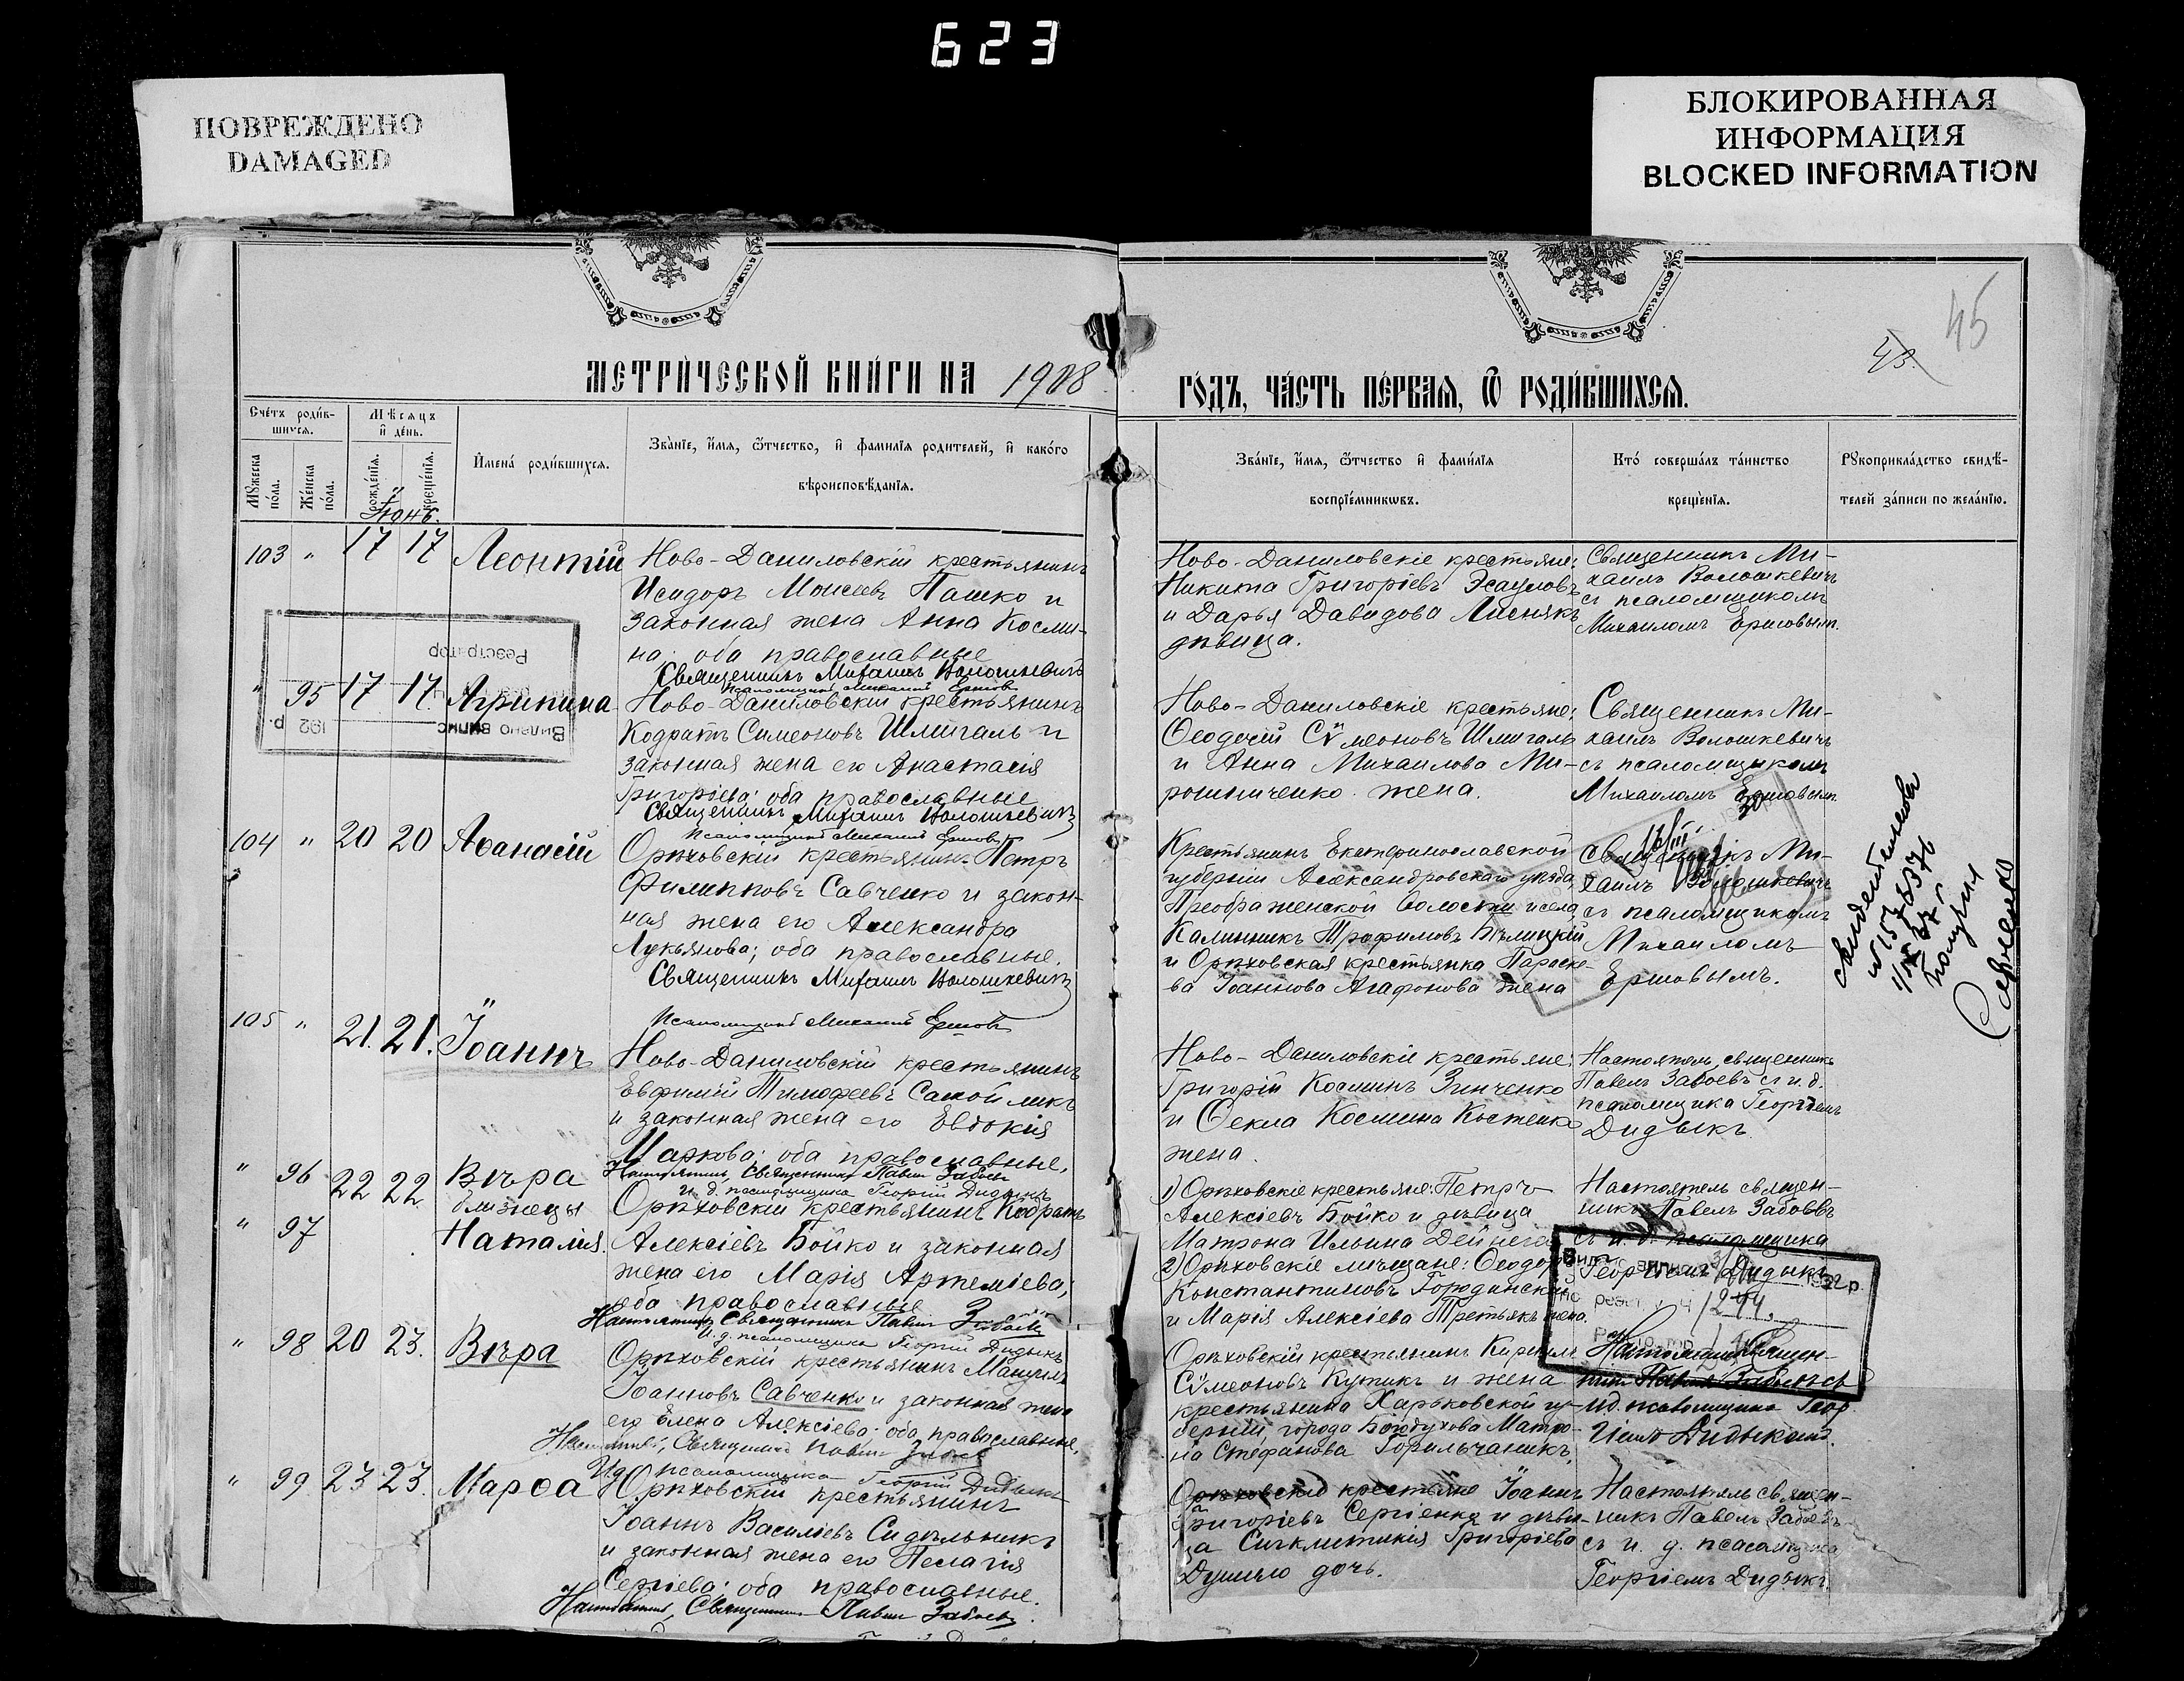 623
ПОВРЕЖДЕНО
DAMAGED
БЛОКИРОВАННАЯ
ИНФОРМАЦИЯ
BLOCKED INFORMATION
45
43.
МЕТРИ́ЧЕСКОЙ КНИ́ГИ НА 1908
ГО́ДЪ, ЧА́СТЬ ПЕ́РВАЯ, Ѿ РОДИ́ВШИХСЯ.
Счетъ родив-
шихся.
Мужеска
пола.
Женска
пола.
Мѣсяцъ
и день.
рожденія.
крещенія.
Іюнь.
Имена родившихся.
Званіе, имя, отчество, и фамилія родителей, и какого
вѣроисповѣданія.
Званіе, имя, отчество и фамилія
воспріемниковъ.
Кто совершалъ таинство
крещенія.
Рукоприкладство свидѣ-
телей записи по желанію.
103 " 17 17 Леонтій
Ново-Даниловскій крестьянинъ
Исидоръ Моисеевъ Пашко и
законная жена Анна Косми-
на; оба православные
Священникъ Михаилъ Волошкевичъ
Псаломщикъ Михаилъ Ершовъ
Ново-Даниловскіе крестьяне:
Никита Григоріевъ Эсауловъ
и Дарья Давидова Лиснякъ
дѣвица.
Священникъ Ми-
хаилъ Волошкевичъ
съ псаломщикомъ
Михаиломъ Ершовымъ.
Реэстратор
Видано випис
192 р.
" 95 17 17. Агрипина
Ново-Даниловскій крестьянинъ
Кодратъ Симеоновъ Шмигаль и
законная жена его Анастасія
Григоріева; оба православные
Священникъ Михаилъ Волошкевичъ
Псаломщикъ Михаилъ Ершовъ
Ново-Даниловскіе крестьяне:
Ѳеодосій Сѵмеоновъ Шмигаль
и Анна Михаилова Ми-
рошниченко жена.
Священникъ Ми-
хаилъ Волошкевичъ
съ псаломщикомъ
Михаиломъ Ершовымъ
104 " 20 20 Аѳанасій
Орѣховскій крестьянинъ Петръ
Филипповъ Савченко и закон-
ная жена его Александра
Лукьянова; оба православные.
Священникъ Михаилъ Волошкевичъ
Псаломщикъ Михаилъ Ершовъ
Крестьянинъ Екатеринославской
губерніи Александровскаго уѣзда,
Преображенской волости и села,
Калинникъ Трофимовъ Бѣлицкій
и Орѣховская крестьянка Параске-
ва Іоаннова Агафонова жена
Священникъ Ми-
хаилъ Волошкевичъ
съ псаломщикомъ
Михаиломъ
Ершовымъ.
свидетельство
получил
Савченко
105 " 21. 21. Іоаннъ
Ново-Даниловскій крестьянинъ
Евфимій Тимофеевъ Самойликъ
и законная жена его Евдокія
Маркова; оба православные,
Настоятель, Священникъ Павелъ Забоевъ
и. д. псаломщика Георгій Дидыкъ
Ново-Даниловскіе крестьяне:
Григорій Косминъ Зинченко
и Ѳекла Космина Костенко
жена.
Настоятель, священникъ
Павелъ Забоевъ съ и. д.
псаломщика Георгіемъ
Дидыкъ
" 96 22 22 Вѣра
близнецы
" 97 Наталія.
Орѣховскій крестьянинъ Кодратъ
Алексіевъ Бойко и законная
жена его Марія Артеміева;
оба православные
Настоятель, Священникъ Павелъ Забоевъ
и. д. псаломщика Георгій Дидыкъ
1) Орѣховскіе крестьяне: Петръ
Алексіевъ Бойко и дѣвица
Матрона Ильина Дейнега
2) Орѣховскіе мѣщане: Ѳеодоръ
Константиновъ Городинскій
и Марія Алексіева Третьякъ жена.
Настоятель священ-
никъ Павелъ Забоевъ
съ и. д. псаломщика
Георгіемъ Дидыкъ
" 98 20 23. Вѣра
Орѣховскій крестьянинъ Мануилъ
Іоанновъ Савченко и законная жена
его Елена Алексіева; оба православные,
Настоятель, Священникъ Павелъ Забоевъ
И д псаломщика Георгій Дидыкъ
Орѣховскій крестьянинъ Кириллъ
Сѵмеоновъ Кутикъ и жена
крестьянина Харьковской гу-
берніи, города Богодухова Матро-
на Стефанова
Настоятель Священ-
никъ Павелъ Забоевъ съ
и.д. псаломщика Геор-
гіемъ Дидыкомъ.
" 99 23 23. Марѳа
Орѣховскій крестьянинъ
Іоаннъ Василіевъ Сидѣльникъ
и законная жена его Пелагія
Сергіева; оба православные.
Настоятель, Священникъ Павелъ Забоевъ.
Орѣховскіе крестьяне Іоаннъ
Григоріевъ Сергіенко и дѣви-
ца Синклитикія Григоріева
дочь.
Настоятель священ-
никъ Павелъ Забоевъ
съ и. д. псаломщика
Георгіемъ Дидыкъ.